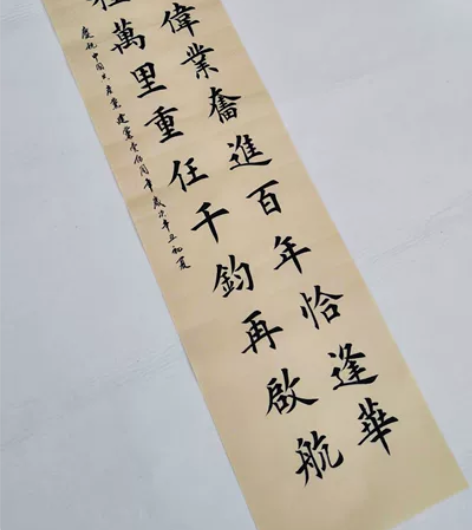 偉業奮進百年恰逢華
萬里重任千鈞再啟航
慶祝中國共產黨建黨壹佰周年歲次辛丑初夏